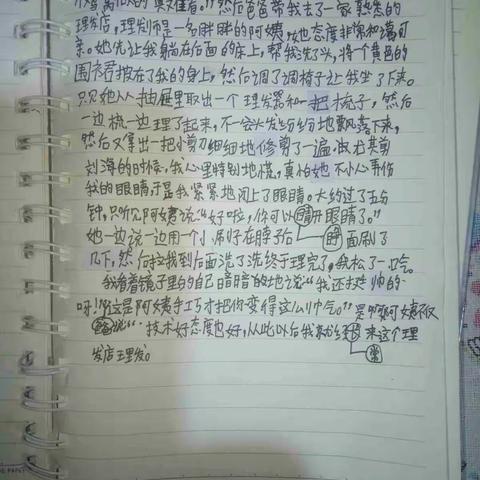 然后爸爸带我去了一家熟悉的
理发店,理发师是一名胖胖的阿姨,她态度非常和蔼可
亲。她先让我躺在后面的床上,帮我洗了头,将一个黄色的
围裙披在了我的身上,然后调了调椅子让我坐了下来。
只见她从抽屉里取出一个理发器和一把梳子,然后
一边梳一边理了起来,不一会头发纷纷地飘落下来,
然后又拿出一把小剪刀细细地修剪了一遍,尤其剪
刘海的时候,我心里特别地慌,真怕她不小心弄伤
我的眼睛,于是我紧紧地闭上了眼睛。大约过了五分
钟,只听见阿姨说“好啦,你可以睁开眼睛了。”
她一边说一边用个小刷子在脖子后面刷了
几下,然后拉我到后面洗了洗终于理完了,我松了一口气。
我看着镜子里的自己暗暗的地说“我还挺帅的
呀!”“这是阿姨手巧才把你变得这么帅气。”是啊阿姨不仅
技术好态度也好,从此以后我就经常来这个理
发店理发。